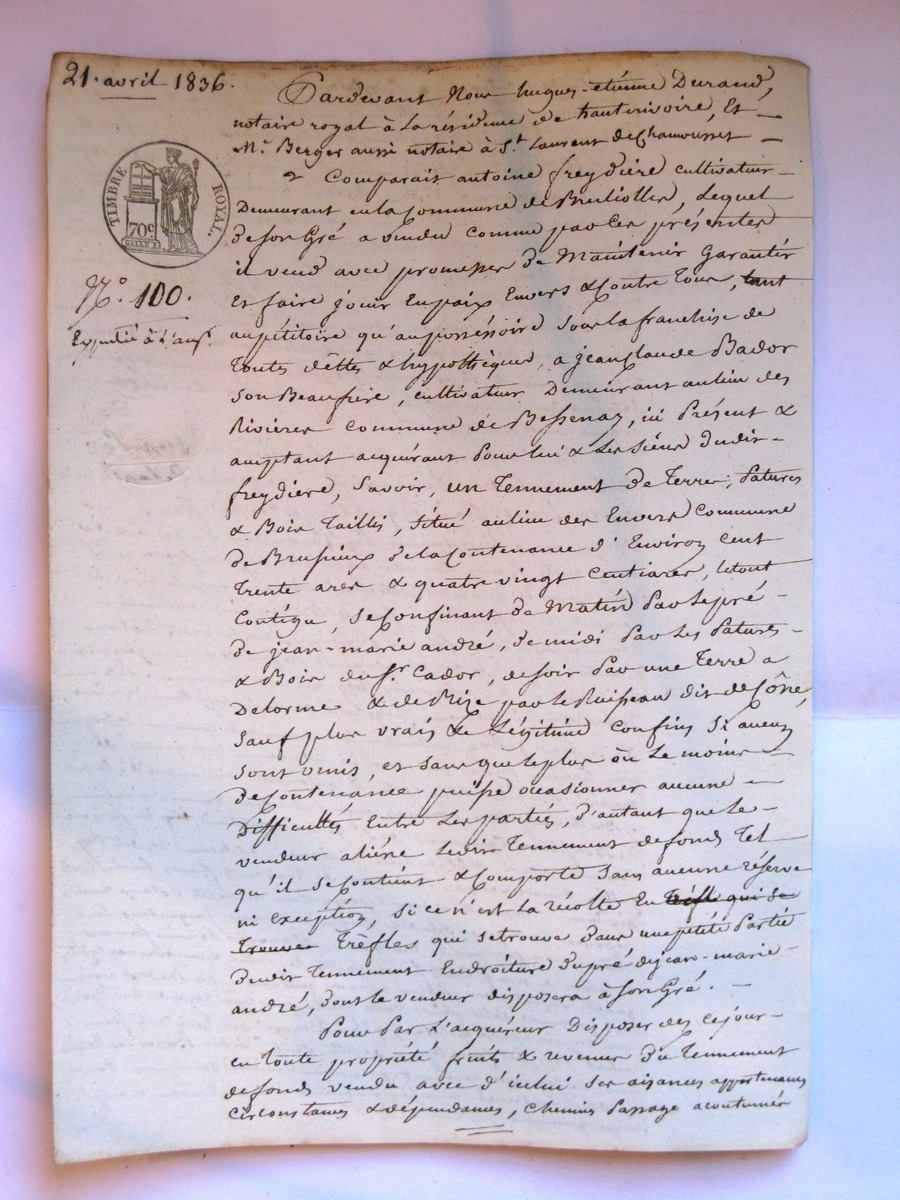 21. avril 1836.
Pardevant Nous hugues-etiénne Durand,
notaire royal à la résidence de hauterivoire, Et
Mr. Berger aussi notaire à St. Laurent de Chamousset
Comparait antoine freydière cultivateur
TIMBRE ROYAL.
70c.
Demeurant en la Commune de Brulliolles, Lequel
de son Gré a vendu comme par Ces présentes
il vend avec promesses de Maintenir Garantir
N°. 100.
Et faire jouir En paix Envers & Contre Tous, tant
Expédié à l'acqr.
au pétitoire qu'au posséssoire sous la franchise de
Toutes dêttes & hypothèques, a jean Claude Bador
son Beaufrère, cultivateur Demeurant au lieu des
Rivières Commune de Bessenay, ici Présent &
acceptant acquérant Pour lui & Les siens dudit
freydière, Savoir, un Tennement De Terres, Patures
& Bois Taillis, situé au lieu des Envers Commune
de Brussieux de la Contenance d'Environ Cent
Trente ares & quatre vingt Centiares, le tout
Contigu, se Confinant de Matin Par le pré
de jean-marie andré, de midi Par Les Patures
& Bois du Sr. Cador, de soir Par une Terre a
Delorme & de Bize par le Ruisseau dit de Côné,
sauf plus vrais & Légitime Confins si aucuns
sont omis, et sans que le plus où Le moins
de Contenance puisse ocasionner aucune
Difficultés Entre Les parties, d'autant que Le
vendeur aliéne Ledit Tennement de fonds Tel
qu'il se Contient & Comporte sans aucune réserve
ni Exception, si ce n'est La récolte En Trêfle qui se
Trouve Trèfles qui se trouve dans une petite Partie
dudit Tennement En droiture du pré de jean-marie
andré, dont le vendeur disposera à son Gré.
Pour Par L'acquéreur Disposer dès ce jour
en Toute propriété fruits & revenus du Tennement
de fonds vendu avec d'icelui ses aisances appartenances
Circonstances & dépendances, Chemins Passage acoutumés